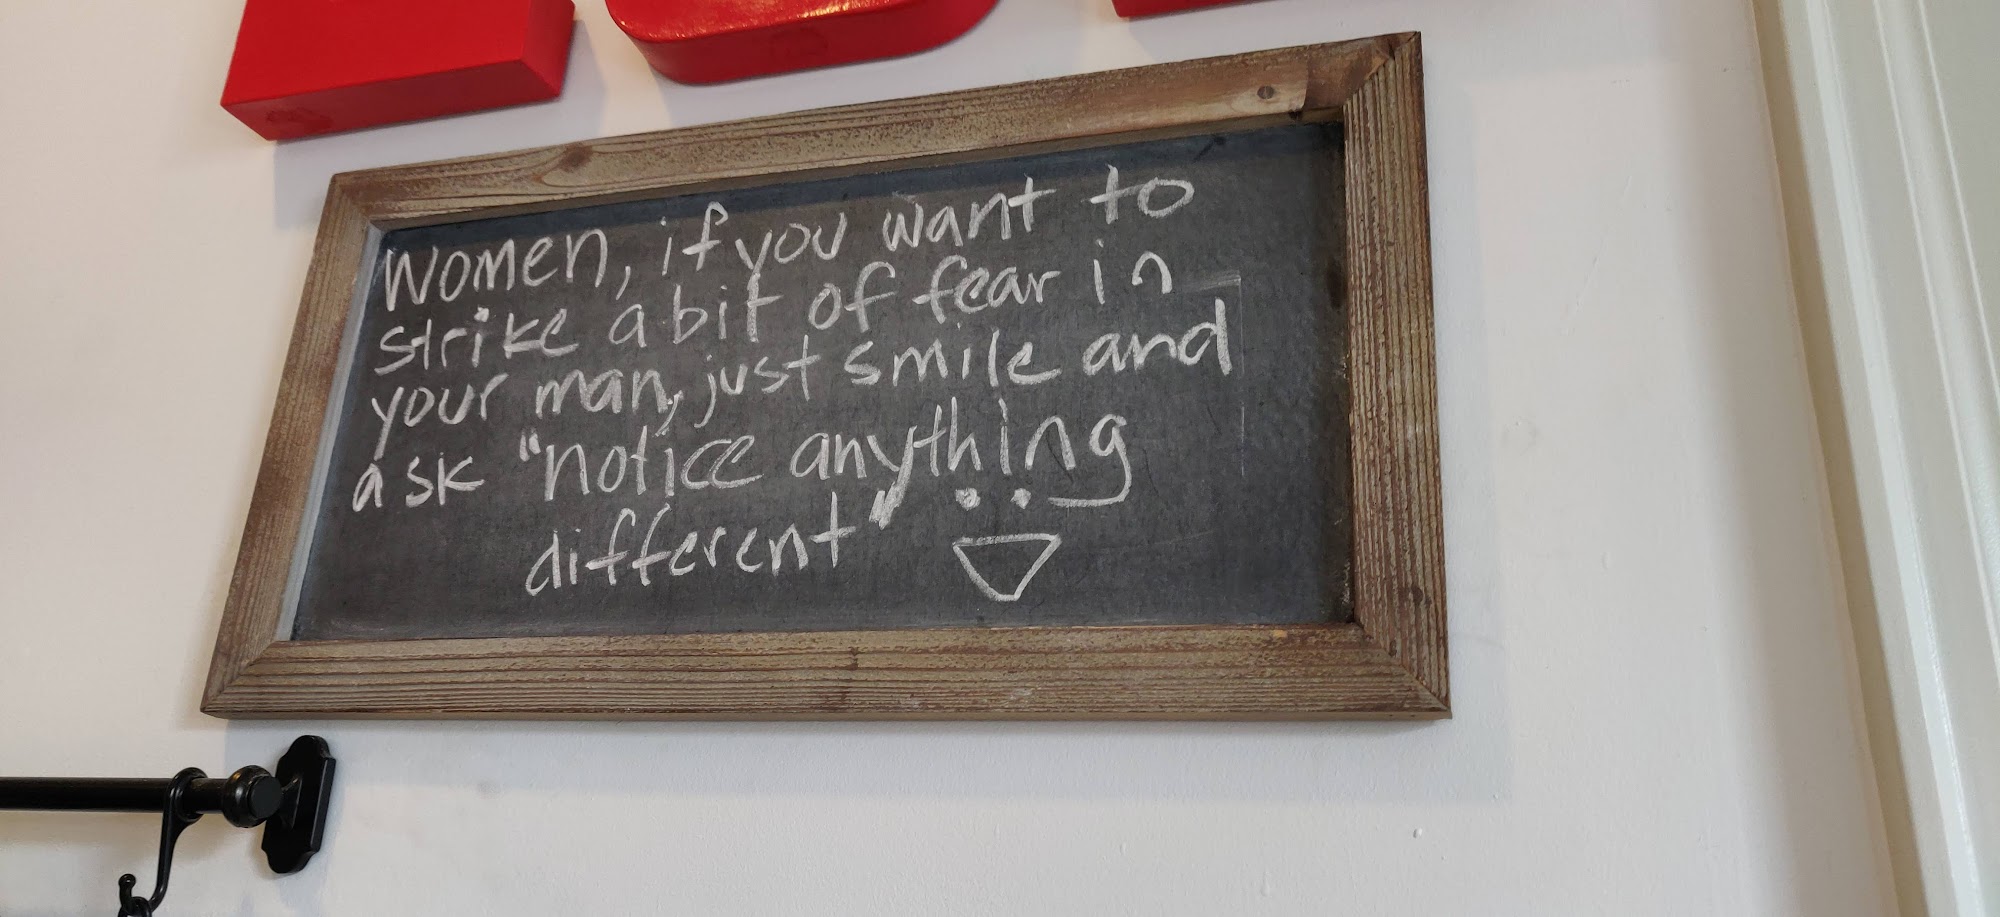 Women, if you want to
strike a bit of fear in
your man, just smile and
ask "notice anything
different"